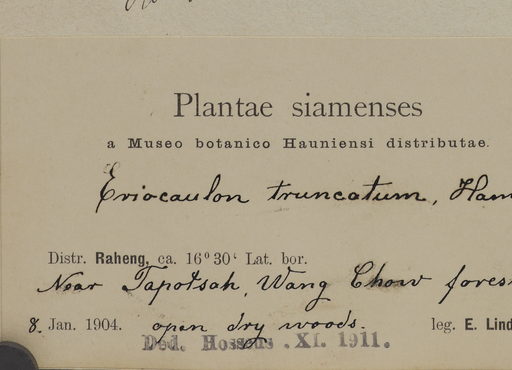 Plantae siamenses
a Museo botanico Hauniensi distributae.
Eriocaulon truncatum, Ham
Distr. Raheng, ca. 16°30‘ Lat. bor.
Near Tapotsah, Wang Chow fores
8. Jan. 1904. open dry woods. leg. E. Lind
Ded. Hosseus .XI. 1911.